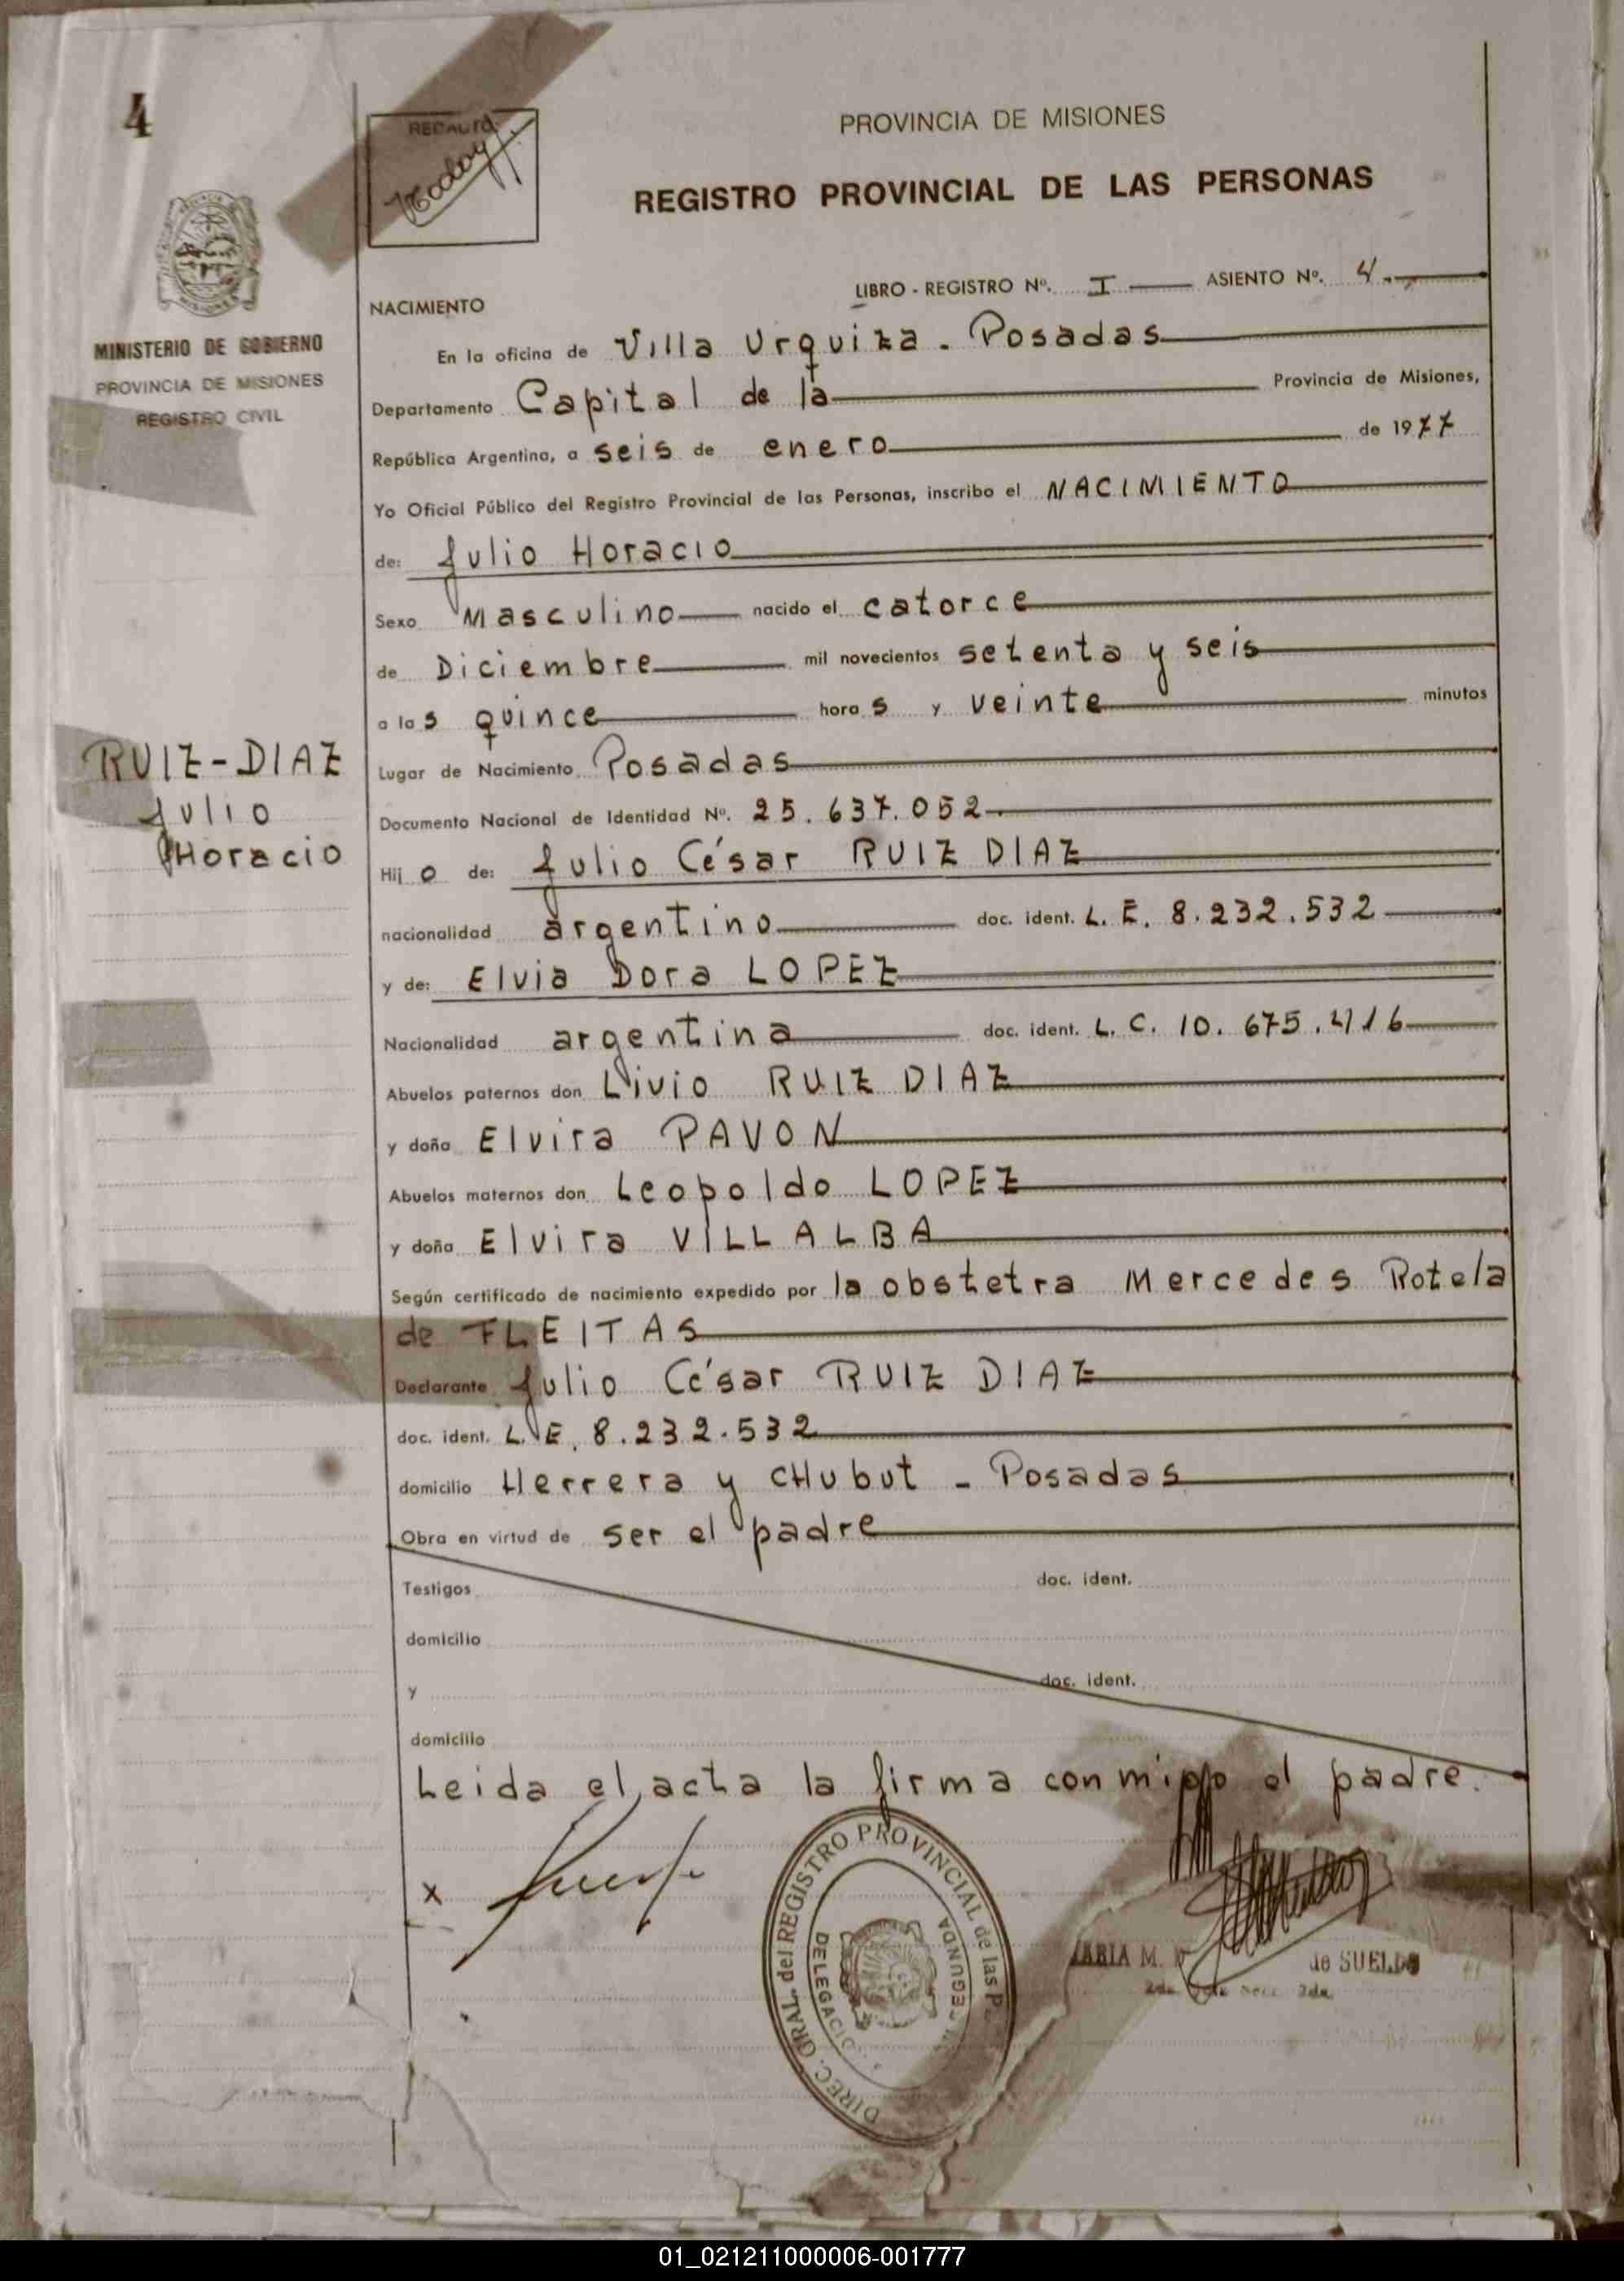 4
REDACTO:
PROVINCIA DE MISIONES
REGISTRO PROVINCIAL DE LAS PERSONAS
LIBRO - REGISTRO Nº. I ASIENTO Nº. 4.-
NACIMIENTO
MINISTERIO DE GOBIERNO
PROVINCIA DE MISIONES
REGISTRO CIVIL
En la oficina de Villa Urquiza - Posadas
Departamento Capital de la Provincia de Misiones,
República Argentina, a seis de enero de 1977
Yo Oficial Público del Registro Provincial de las Personas, inscribo el NACIMIENTO
de: Julio Horacio
Sexo Masculino nacido el catorce
de Diciembre mil novecientos setenta y seis
a las quince horas y veinte minutos
RUIZ-DIAZ
Julio
Horacio
Lugar de Nacimiento Posadas
Documento Nacional de Identidad Nº. 25.637.052.
Hijo de: Julio César RUIZ DIAZ
nacionalidad argentino doc. ident. L.E. 8.232.532
y de: Elvia Dora LOPEZ
Nacionalidad argentina doc. ident. L.C. 10.675.416
Abuelos paternos don Livio RUIZ DIAZ
y doña Elvira PAVON
Abuelos maternos don Leopoldo LOPEZ
y doña Elvira VILLALBA
Según certificado de nacimiento expedido por la obstetra Mercedes Rotela
de FLEITAS
Declarante Julio César RUIZ DIAZ
doc. ident. L.E. 8.232.532
domicilio Herrera y CHubut - Posadas
Obra en virtud de ser el padre
Testigos doc. ident.
domicilio
y doc. ident.
domicilio
Leida el acta la firma conmigo el padre.
x
DIREC. GRAL. del REGISTRO PROVINCIAL de las P
DELEGACIO SEGUNDA
MARIA M. de SUELDO
01_021211000006-001777